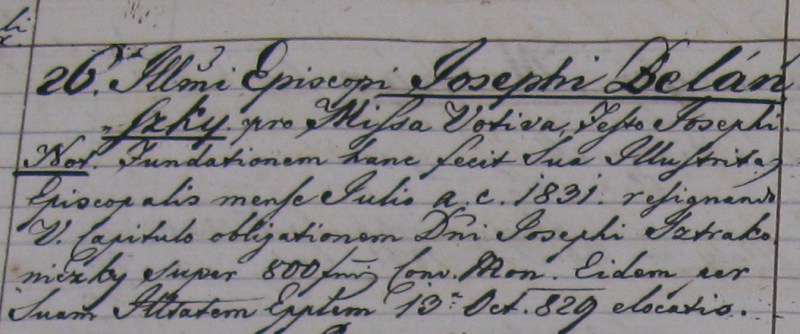 26. Illmi Episcopi Josephi Belán
szky. pro Missa Votiva, Festo Josephi.
Not. Fundationem hanc fecit Sua Illustritas
Episcopalis mense Julio a. c. 1831. resignando
V. Capitulo obligationem Dni Josephi Isztrako
niczky super 800 fnis Conv. Mon. Eidem per
Suam Illtatem Epplem 13a Oct. 829 elocatis.